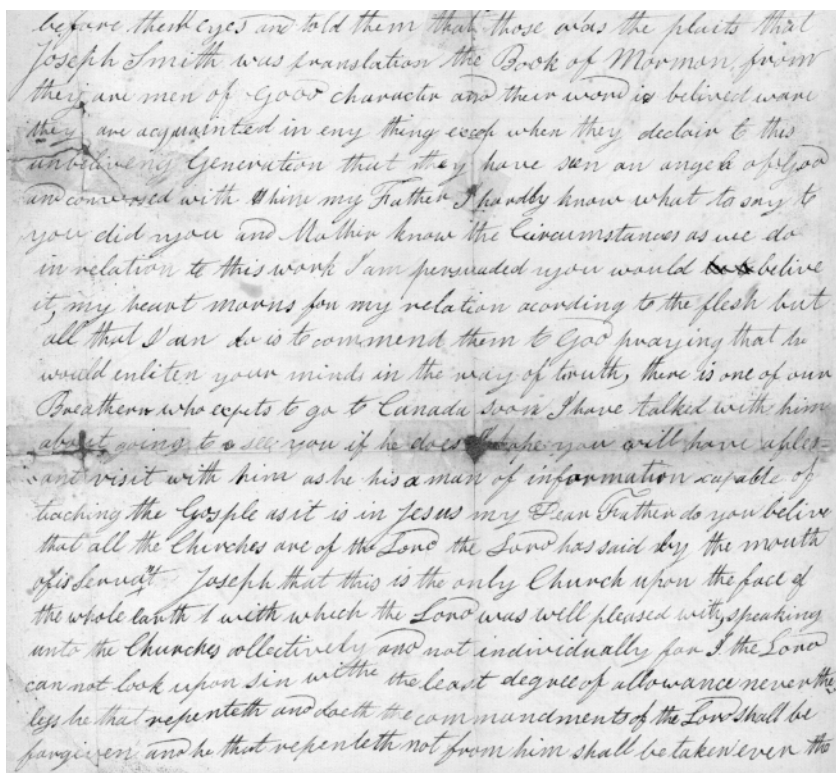 before there eyes and told them that those was the plaits that
Joseph Smith was translation the Book of Mormon from
they are men of good character and their word is belived ware
they are acquainted in eny thing excep when they declair to this
unbeliveng Generation that they have seen an angel of God
and conversed with him my Father I hardly know what to say to
you did you and Mother know the Circumstances as we do
in relation to this work I am persuaded you would belive
it, my heart morns for my relation acording to the flesh but
all that I can do is to commend them to God praying that he
would enliten your minds in the way of truth, there is one of our
Breathern who expts to go to Canada soon I have talked with him
about going to see you if he does I hope you will have a ples-
ant visit with him as he his a man of information capable of
teaching the Gosple as it is in Jesus my Dear Father do you belive
that all the Churches are of the Lord the Lord has said by the mouth
of is Servant Joseph that this is the only Church upon the face of
the whole earth with which the Lord was well pleased with, speaking
unto the Churches collectively and not individually for I the Lord
can not look upon sin withe the least degree of allowance never the
less he that repenteth and doeth the commandments of the Lord shall be
forgiven and he that repenteth not from him shall be taken even the